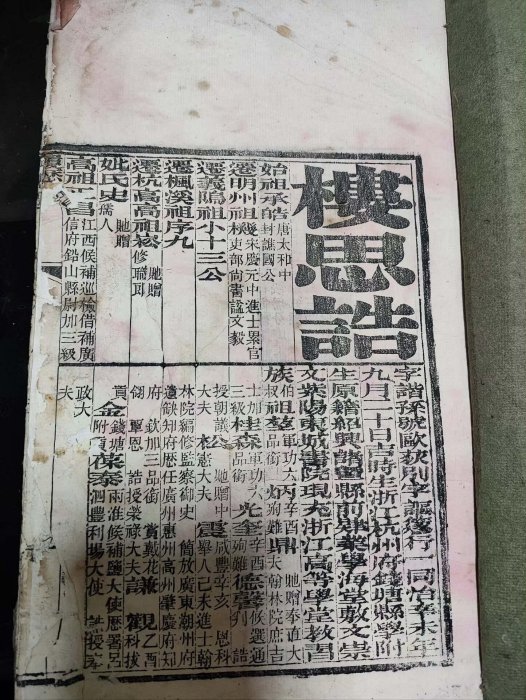 樓思誥
始祖承皓 唐太和中
封譙國公
宋慶元中進士累官
吏部尚書諡文毅
遷義隝祖小十三公
遷楓溪祖序九
遷杭高高祖崧 貤贈
修職郎
妣氏史 貤贈
孺人
高祖 昌 江西候補巡檢借補廣
信府鉛山縣尉加三級
字諧孫號歐荻別字謳後行一同治辛未年
九月二十日吉時生浙江杭州府錢塘縣學附
生原籍紹興諸暨縣前肄業學海堂敷文崇
文紫陽東城書院現充浙江高等學堂教習
族伯叔祖 軍功六品銜 丙 辛酉殉難 鼎 貤贈奉直大夫翰林院庶吉
士加三級 桂森 軍功六品銜 光奎 辛酉殉難 德馨 候選通判
授朝議大夫 松 貤贈中憲大夫 震 咸豐辛亥恩科舉人己未進士翰
林院編修監察御史 簡放廣東潮州府
遺缺知府歷任廣州惠州高州肇慶府知
府 欽加三品銜 賞戴花翎 覃恩 誥授榮祿大夫 謙 觀 乙酉科拔
貢 金 錢塘附貢 葆泰 兩淮候補鹽大使歷署呂泗豐利場大使 誥授奉
政大
夫